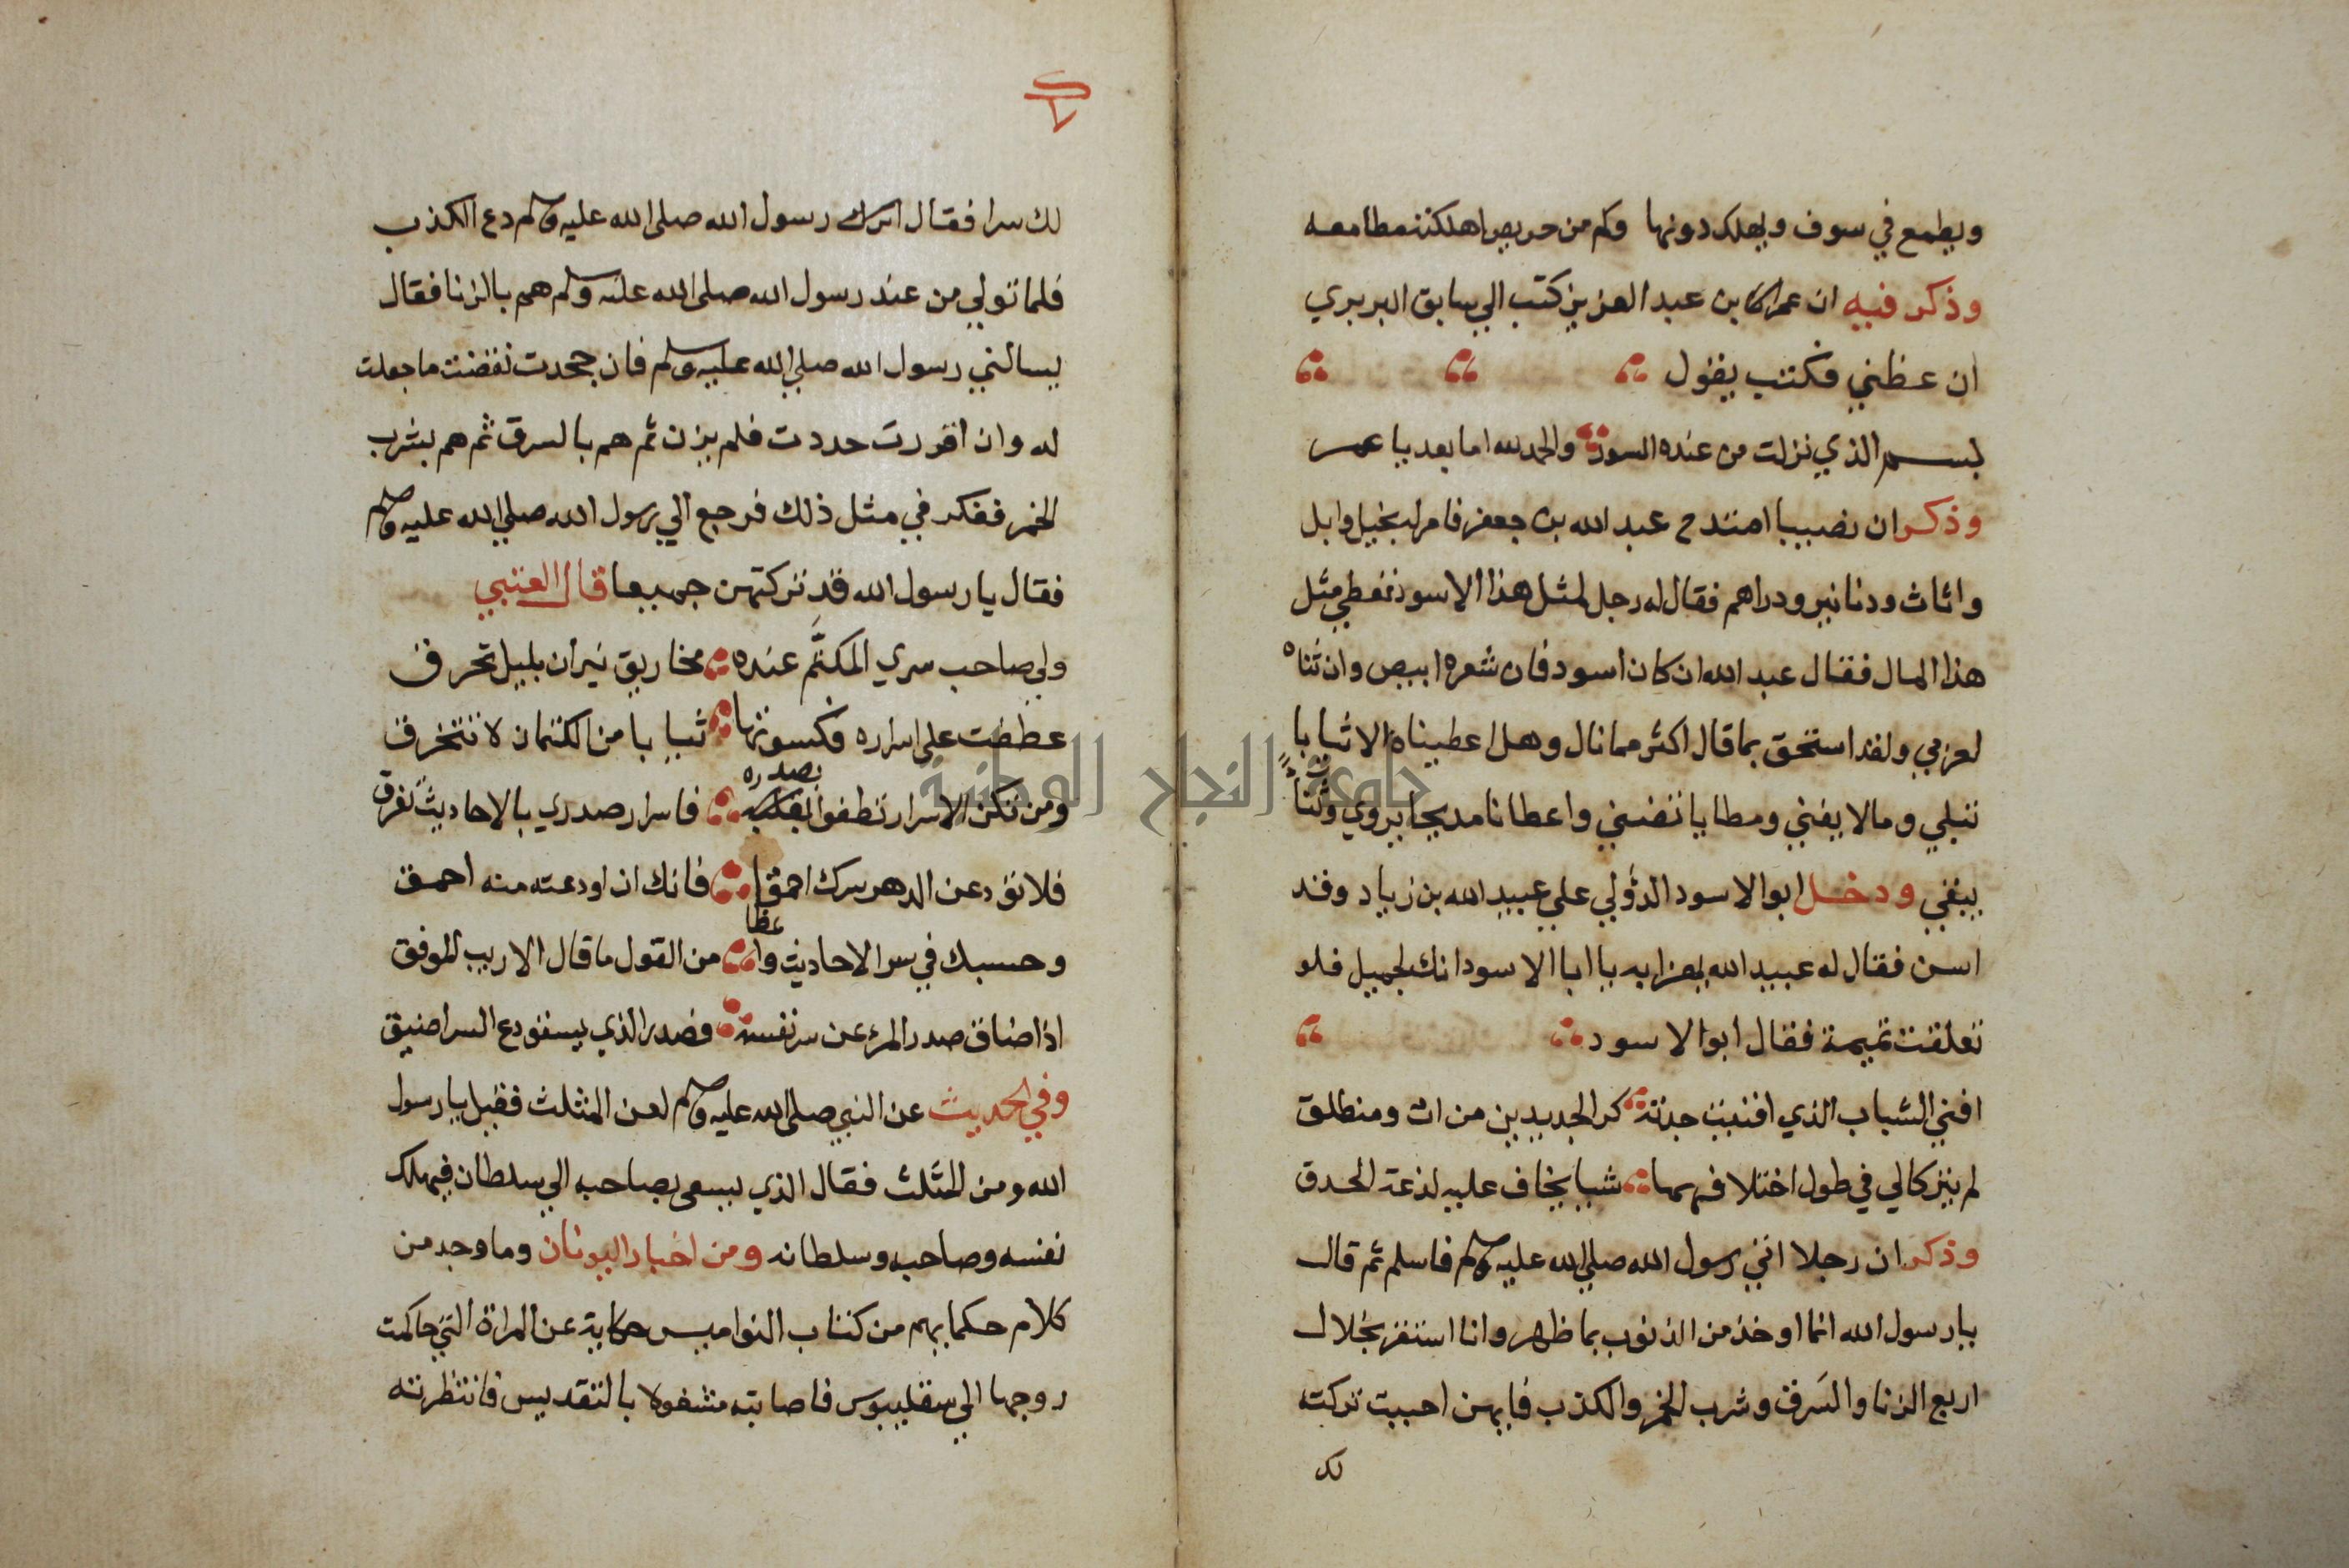 ويطمع في سوف ويهلك دونها وكم من حريص اهلكته مطامعه
وذكر فيه ان عمر بن عبد العزيز كتب الي سابق البربري
ان عظني فكتب يقول
بسم الذي نزلت من عنده السور والحمد لله اما بعد يا عمر
وذكر ان نصيبا امتدح عبد الله بن جعفر فامر له بخيل وابل
واثاث ودنانير ودراهم فقال له رجل لمثل هذا الاسود تعطي مثل
هذا المال فقال عبد الله ان كان اسود فان شعره ابيض وان ثناه
لعربي ولقد استحق بما قال اكثر مما نال وهل اعطيناه الا ثيابا
تبلي ومالا يفني ومطايا تنضي واعطانا مديحا يروي وثناً
يبقي ودخل ابو الاسود الدؤلي علي عبيد الله بن زياد وقد
اسن فقال له عبيد الله يهزا به يا ابا الاسود انك لجميل فلو
تعلقت تميمة فقال ابو الاسود
افني الشباب الذي افنيت جدته كر الجديدين من ات ومنطلق
لم يتركا لي في طول اختلافهما شيا يخاف عليه لذعة الحدق
وذكر ان رجلا اتي رسول الله صلي الله عليه وسلم فاسلم ثم قال
يا رسول الله انما اوخذ من الذنوب بما ظهر وانا استتر بخلال
اربع الزنا والسَرق وشرب الخمر والكذب فايهن احببت تركته
لك
لك سرا فقال اترك رسول الله صلى الله عليه وسلم دع الكذب
فلما تولي من عند رسول الله صلى الله عليه وسلم هم بالزنا فقال
يسالني رسول الله صلي الله عليه وسلم فان جحدت نقضت ما جعلت
له وان اقررت حددت فلم يزن ثم هم بالسرق ثم هم بشرب
الخمر ففكر في مثل ذلك فرجع الي رسول الله صلي الله عليه وسلم
فقال يا رسول الله قد تركتهن جميعا قال العتبي
ولي صاحب سري المكتَّم عنده مخاريق نيران بليل تحرق
عطفت علي اسراره فكسوتها ثيابا من الكتمان لا تتخرق
ومن تكن الاسرار تطفوا بقلبه بصدره فاسرار صدري بالاحاديث تغرق
فلا تودعن الدهر سرك احمقا فانك ان اودعته منه احمق
وحسبك في سر الاحاديث واعظا من القول ما قال الاريب الموفق
اذا ضاق صدر المرء عن سر نفسه فصدر الذي يستودع السر اضيق
وفي الحديث عن النبي صلى الله عليه وسلم لعن المثلث فقيل يا رسول
الله ومن المثلث فقال الذي يسعى بصاحبه الي سلطان فيهلك
نفسه وصاحبه وسلطانه ومن اخبار اليونان وما وجد من
كلام حكمايهم من كتاب النواميس حكاية عن المراة التي حاكمت
زوجها الي فاصابته مشغولا بالتقديس فانتظرته
جامعة النجاح الوطنية